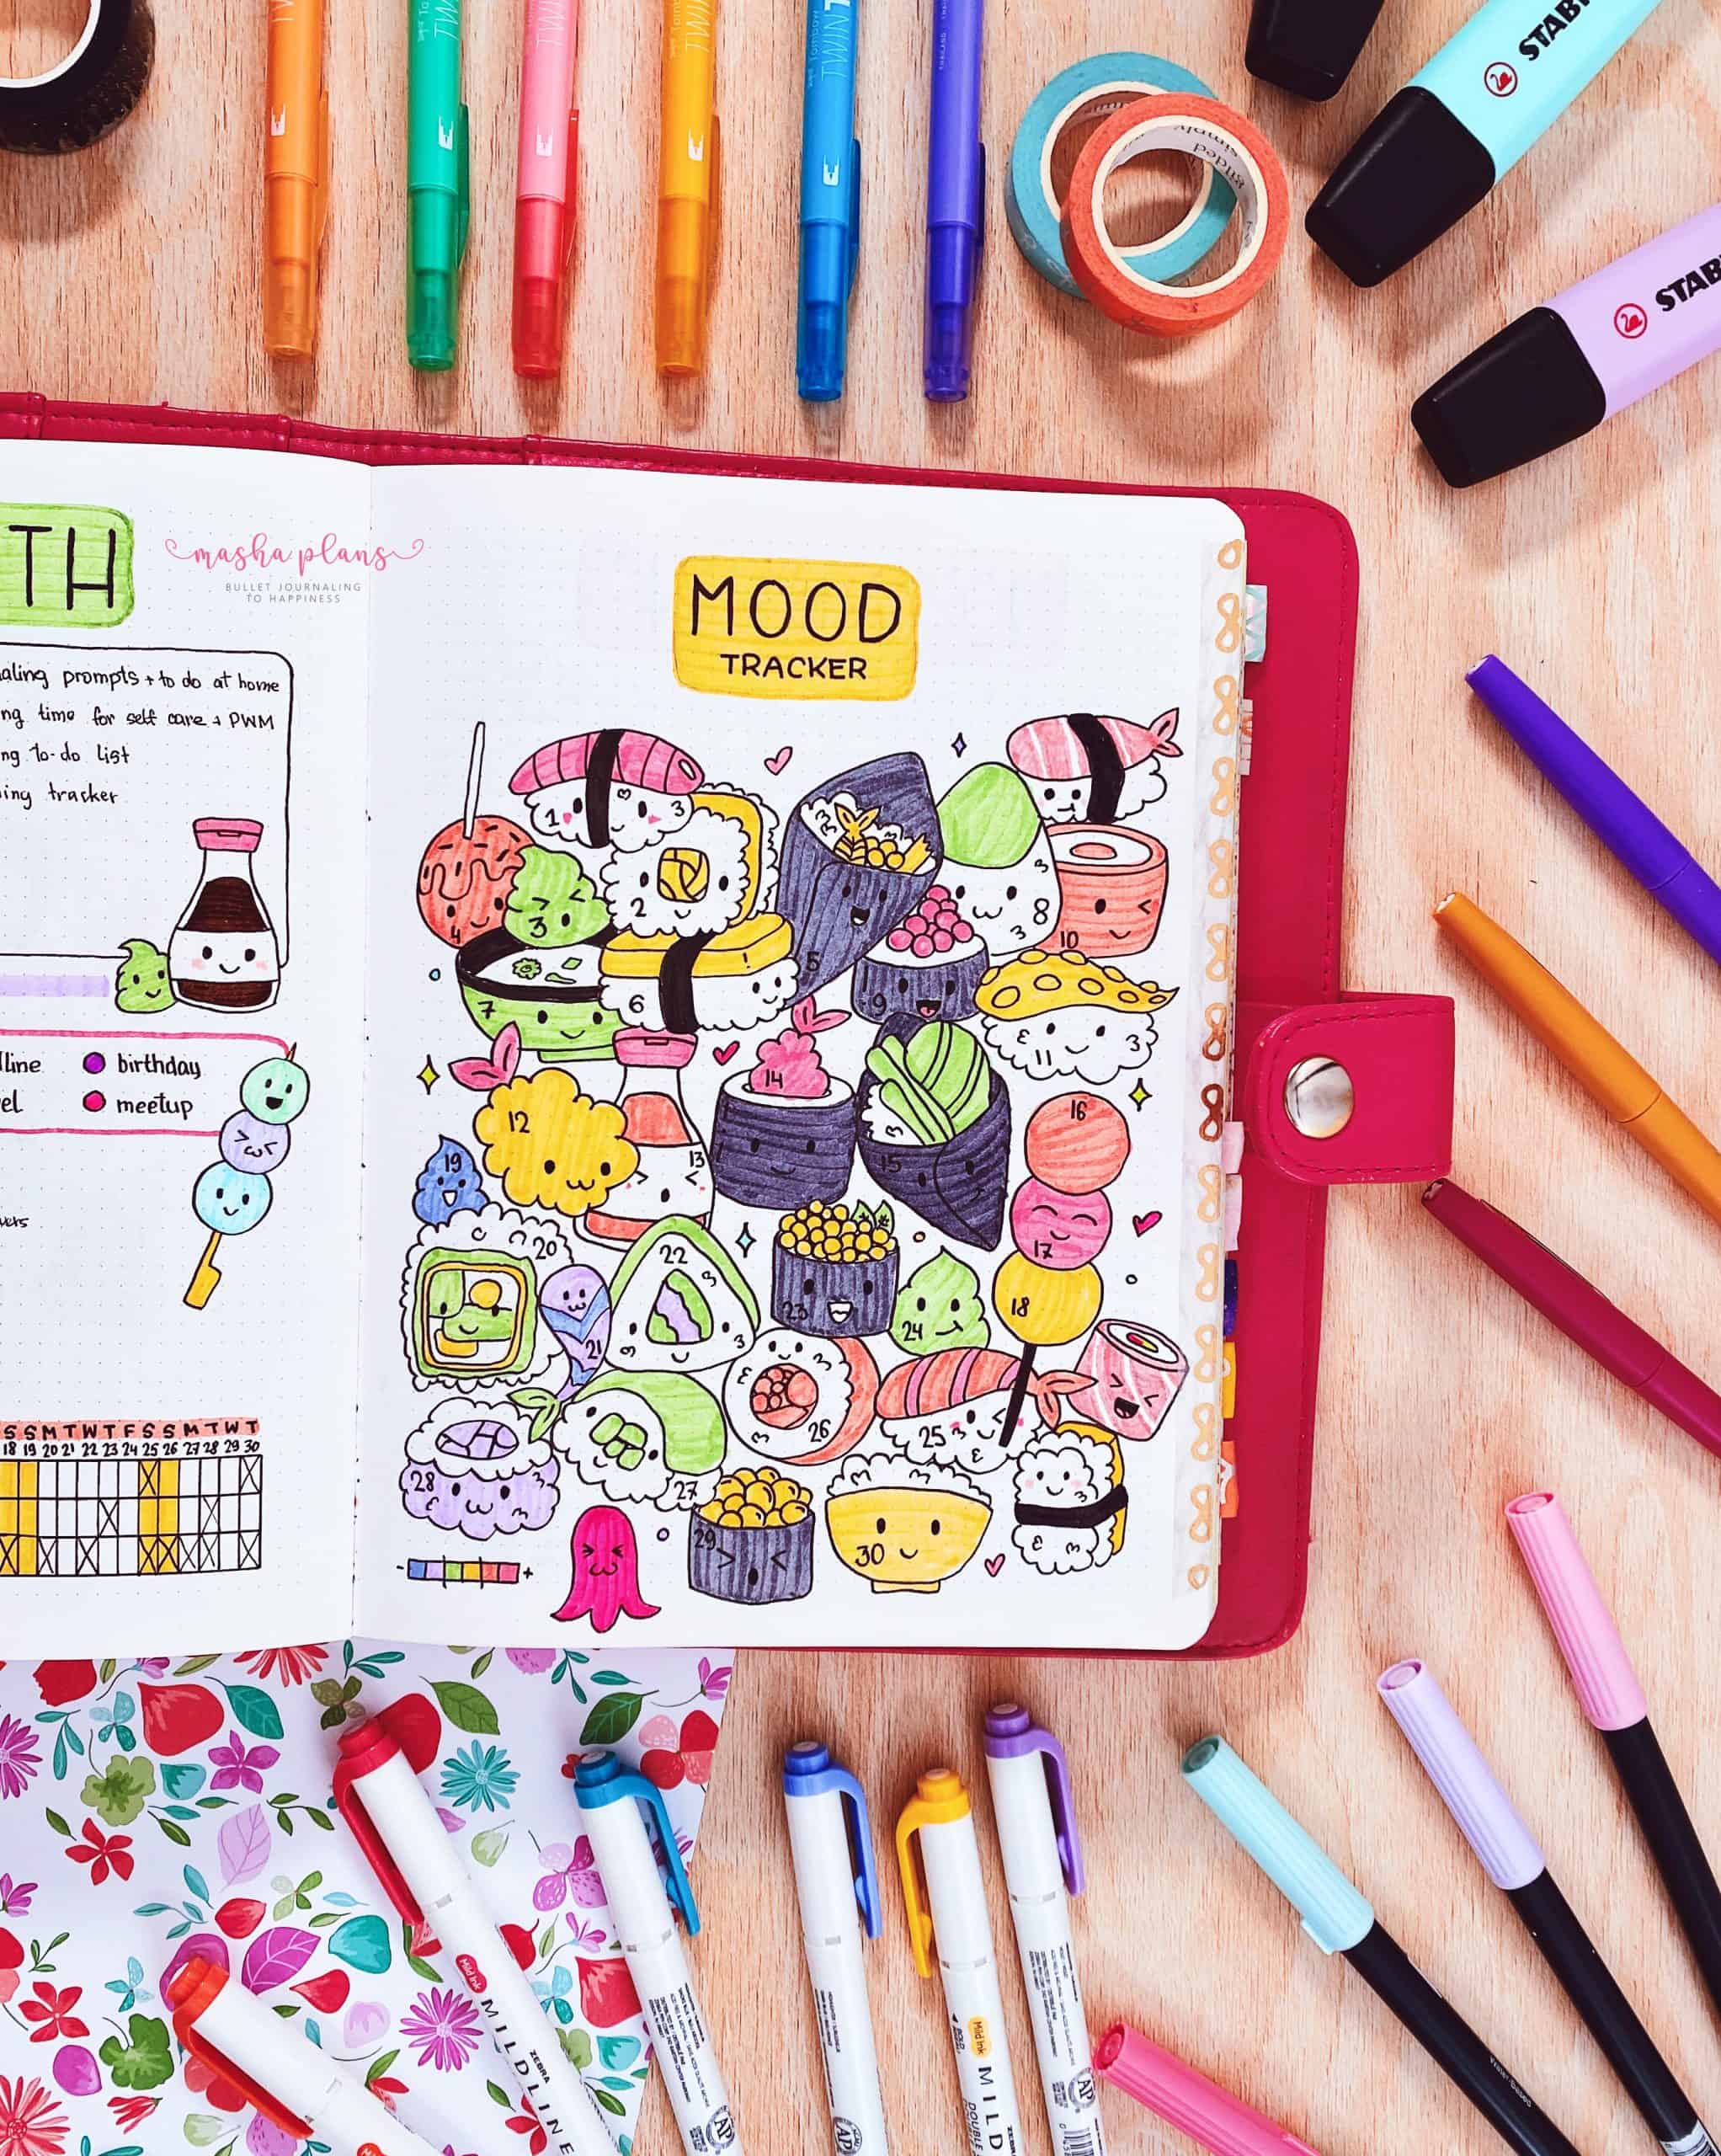 TWIN
TWIN
TWIN
TWIN
STAB
STAB
gilded
simply
TH
masha plans
BULLET JOURNALING
TO HAPPINESS
MOOD
TRACKER
prompts + to do at home
time for self care + PWM
to-do list
tracker
birthday
meetup
S S M T W T F S S M T W T
18 19 20 21 22 23 24 25 26 27 28 29 30
1
2
3
4
5
6
7
8
9
10
11
12
13
14
15
16
17
18
19
20
21
22
23
24
25
26
27
28
29
30
- +
Mild ink
ZEBRA
MILDLINE
Mild ink
MILD
DOUBLE
AP
AP
AP